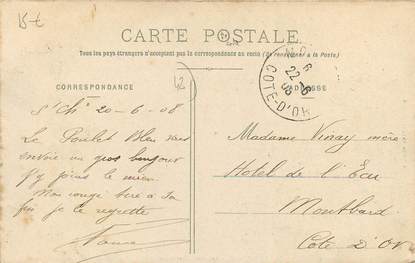 15 €
CARTE POSTALE
Tous les pays étrangers n'acceptent pas la correspondance au recto (Se renseigner à la Poste)
CORRESPONDANCE
ADRESSE
22-6
08
COTE-D'OR
St Ch. 20-6-08
Le Poulet Bleu vous
envoie un gros bonjour
J'y joins le mien
Mon congé tire à sa
fin je le regrette
Madame Viray mère
Hôtel de l'Écu
Montbard
Côte d'Or